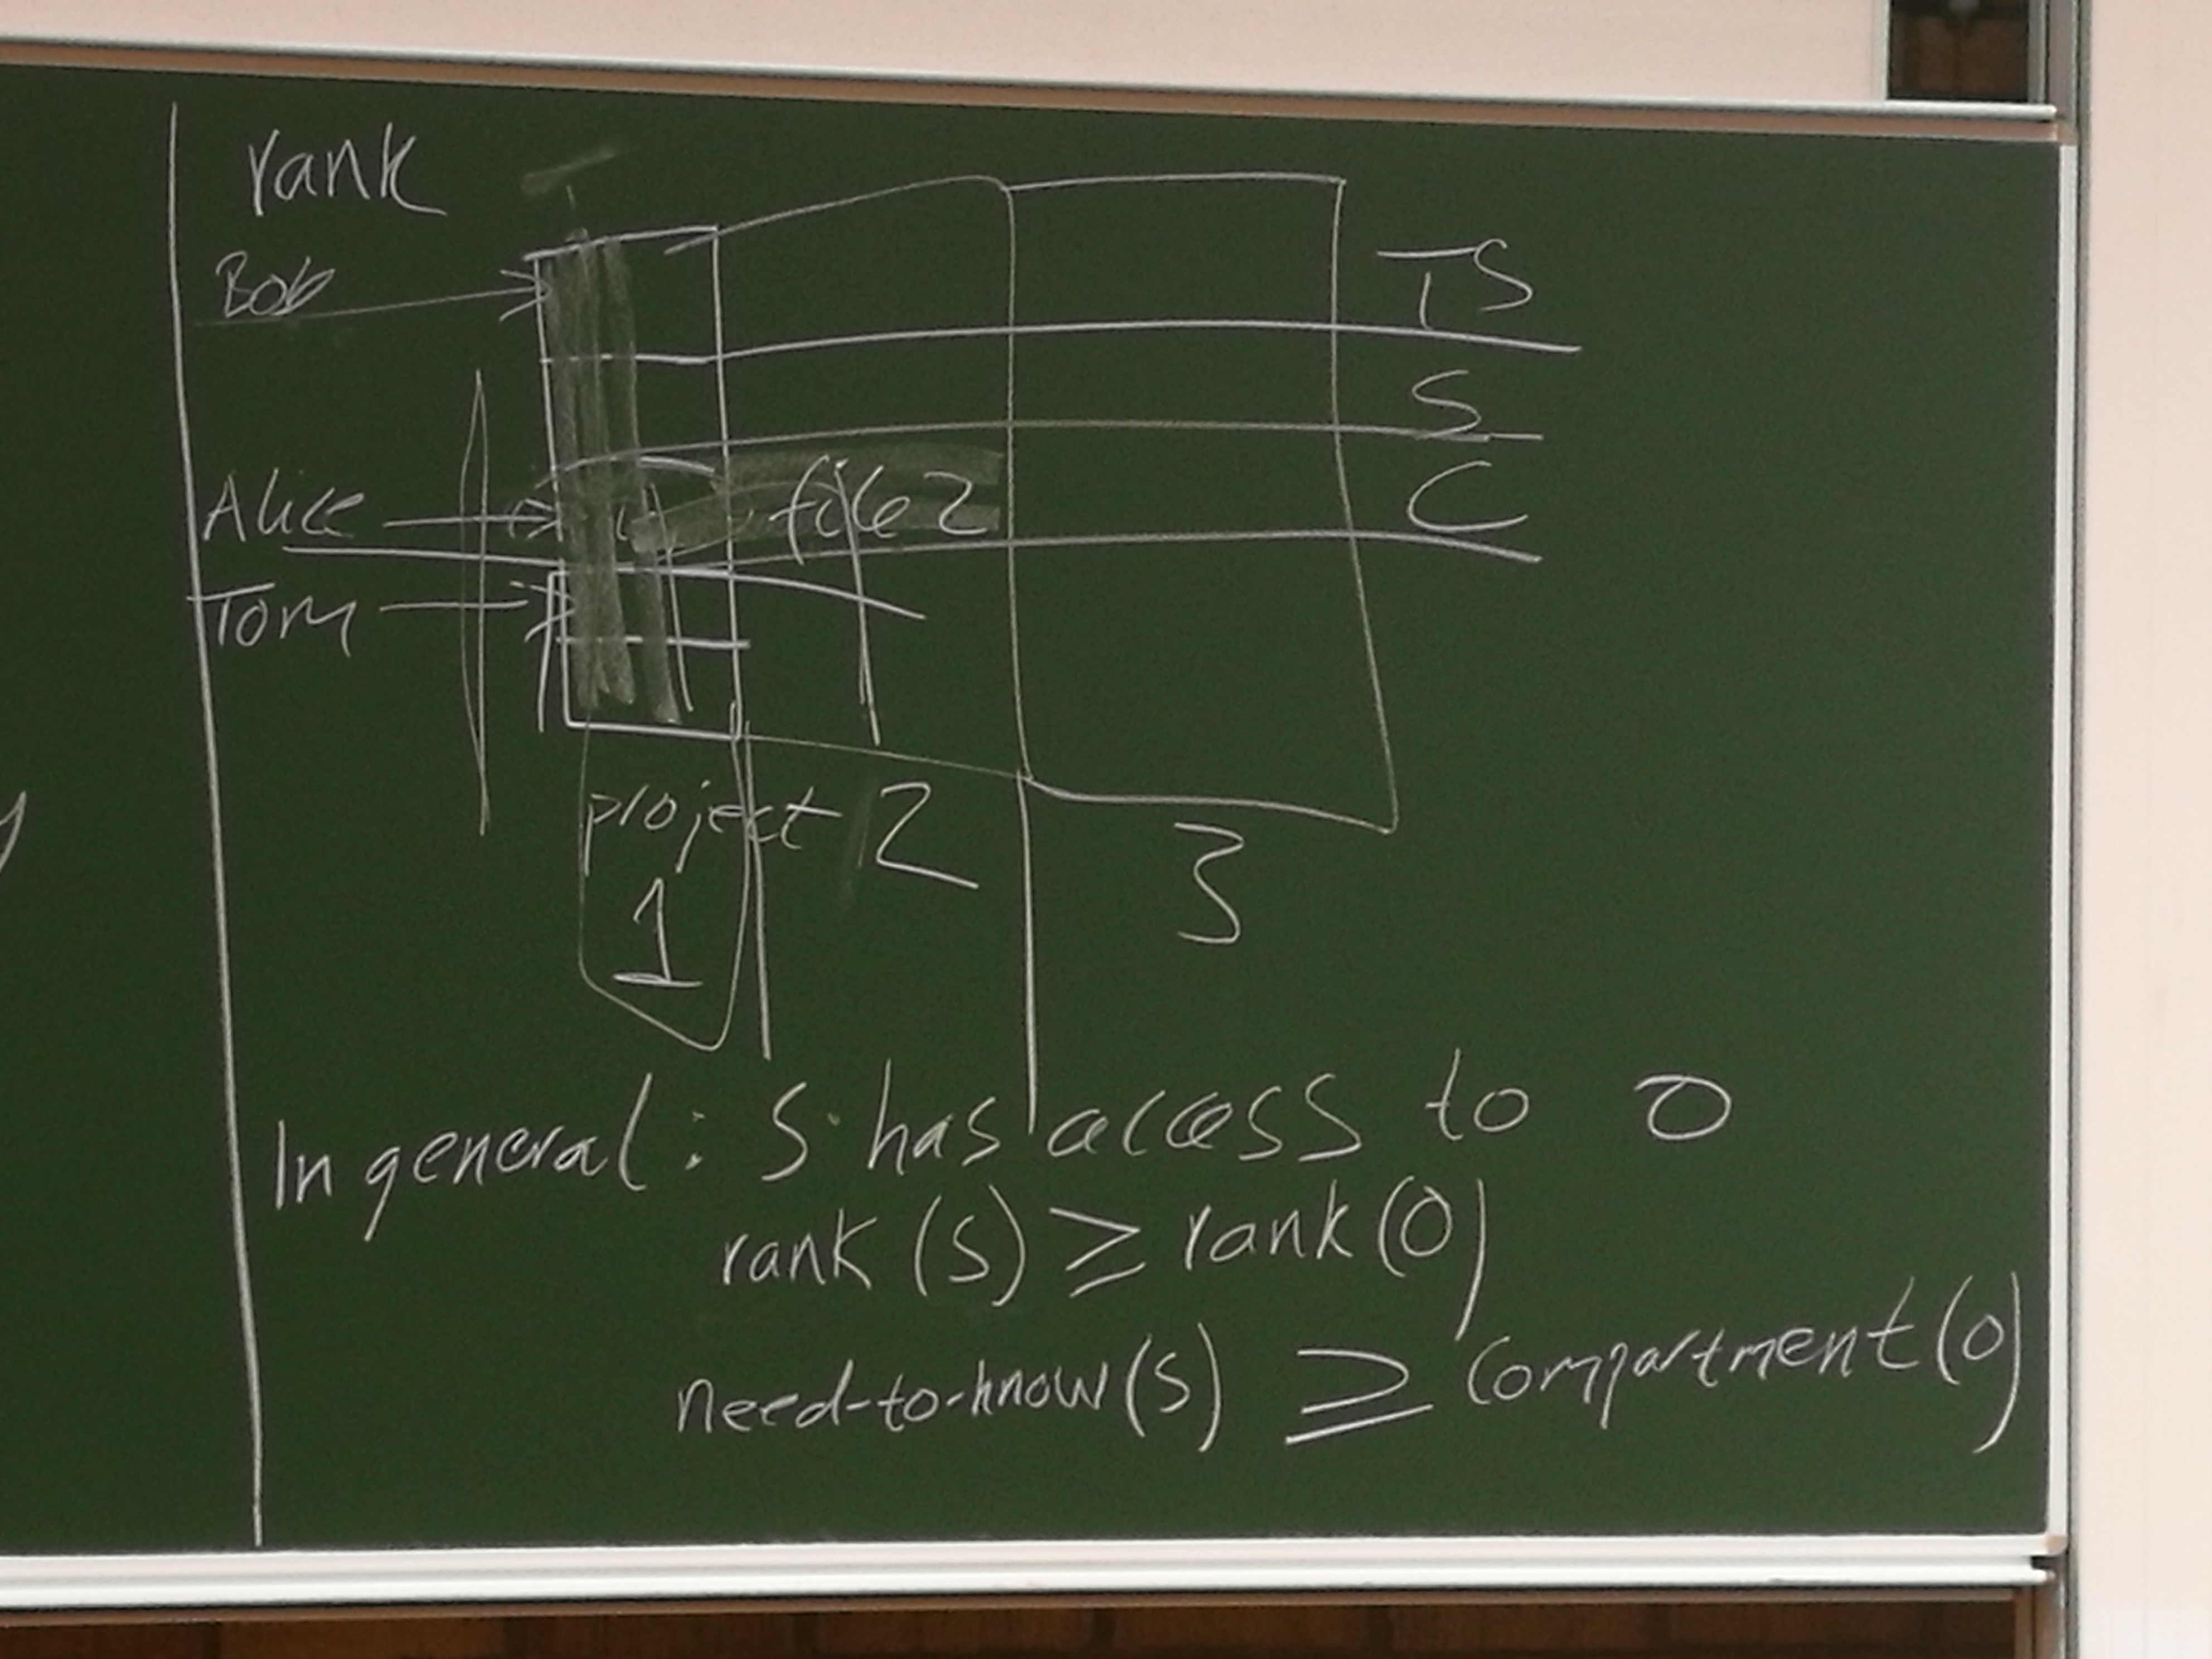 rank
Bob
TS
S
Alice
file 2
C
Tom
project 2
1
3
In general: S has access to O
rank (S) ≥ rank(O)
need-to-know(S) ⊇ compartment(O)